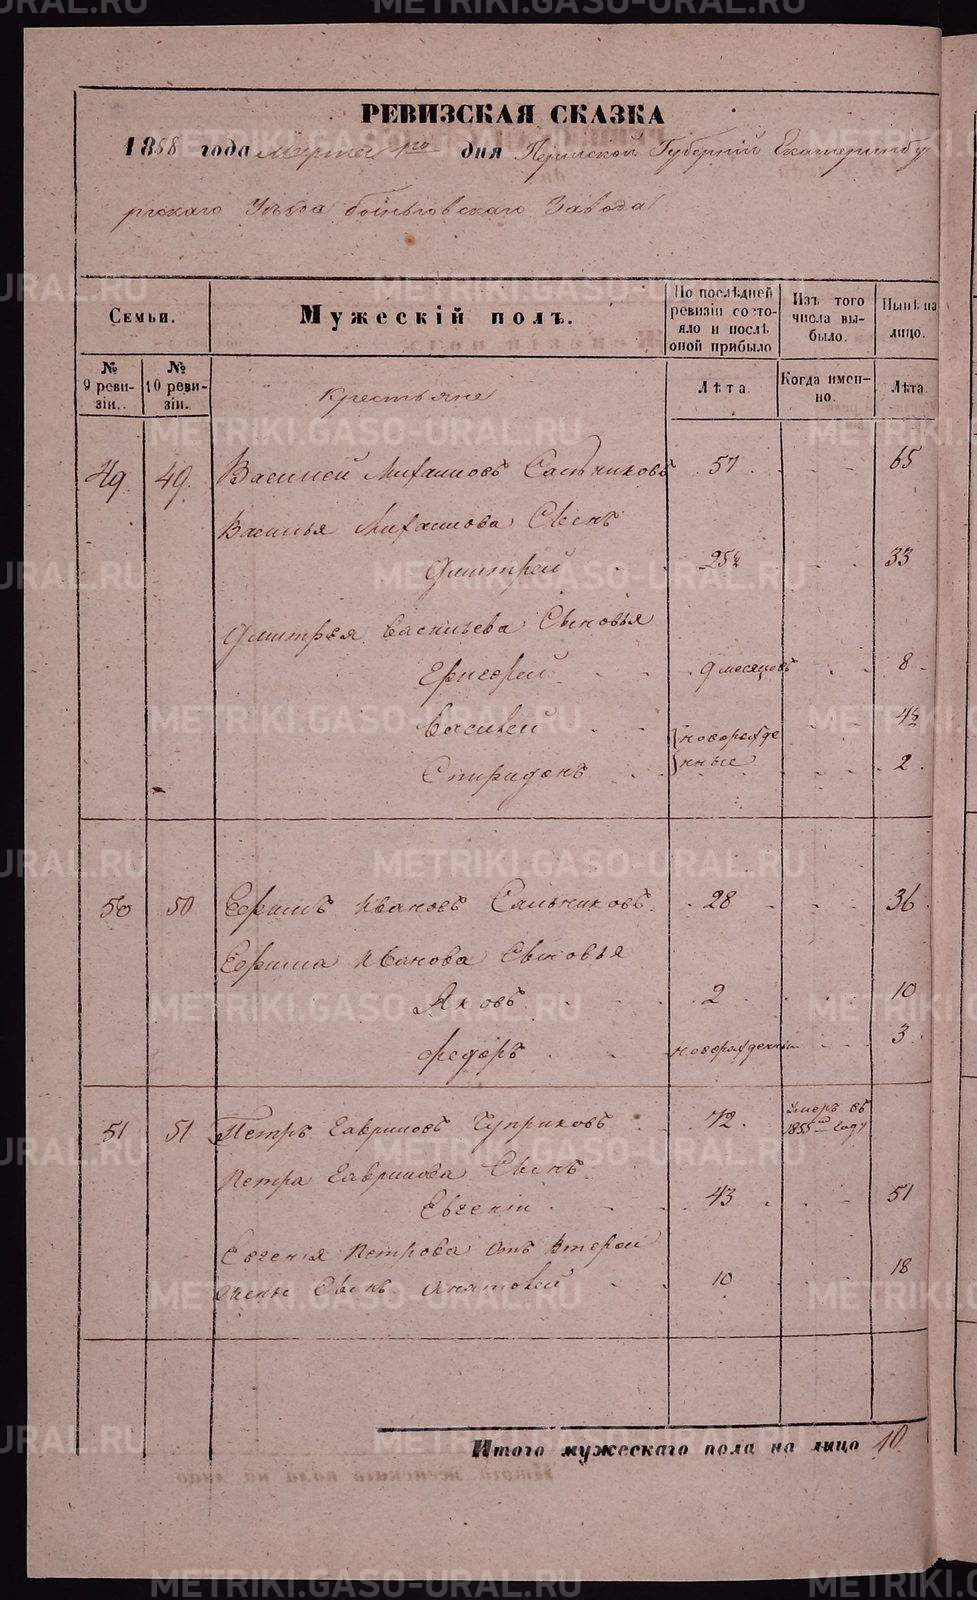 РЕВИЗСКАЯ СКАЗКА
1858 года Марта 1го дня Пермской Губерніи Екатеринбу
ргскаго Уѣзда Боіньговскаго Завода
Семьи.
Мужескій полъ.
По послѣдней ревизіи состо-
яло и послѣ
оной прибыло
Изъ того
числа вы-
было.
Нынѣ на
лицо.
№
9 реви-
зіи.
№
10 реви-
зіи.
Лѣта.
Когда имен-
но.
Лѣта
Крестьяне
49 49. Василей Михаиловъ Сальниковъ 57 65
Василья Михаилова Сынъ
Дмитрей 25½ 33
Дмитрея Васильева Сыновья
Григорей 9 месяцовъ 8
Василей 4½
новорожде
нные
Спиридонъ 2
50 50 Ефимъ Ивановъ Сальниковъ 28 36
Ефима Иванова Сыновья
Яковъ 2 10
Федоръ новорожденный 3
51 51 Петръ Гавриловъ Чуприковъ 72. Умеръ въ
1855мъ Году
Петра Гаврилова Сынъ
Евгеній 43 51
Евгенія Петрова отъ второй
жены Сынъ 10 18
Итого мужескаго пола на лицо 10
METRIKI.GASO-URAL.RU